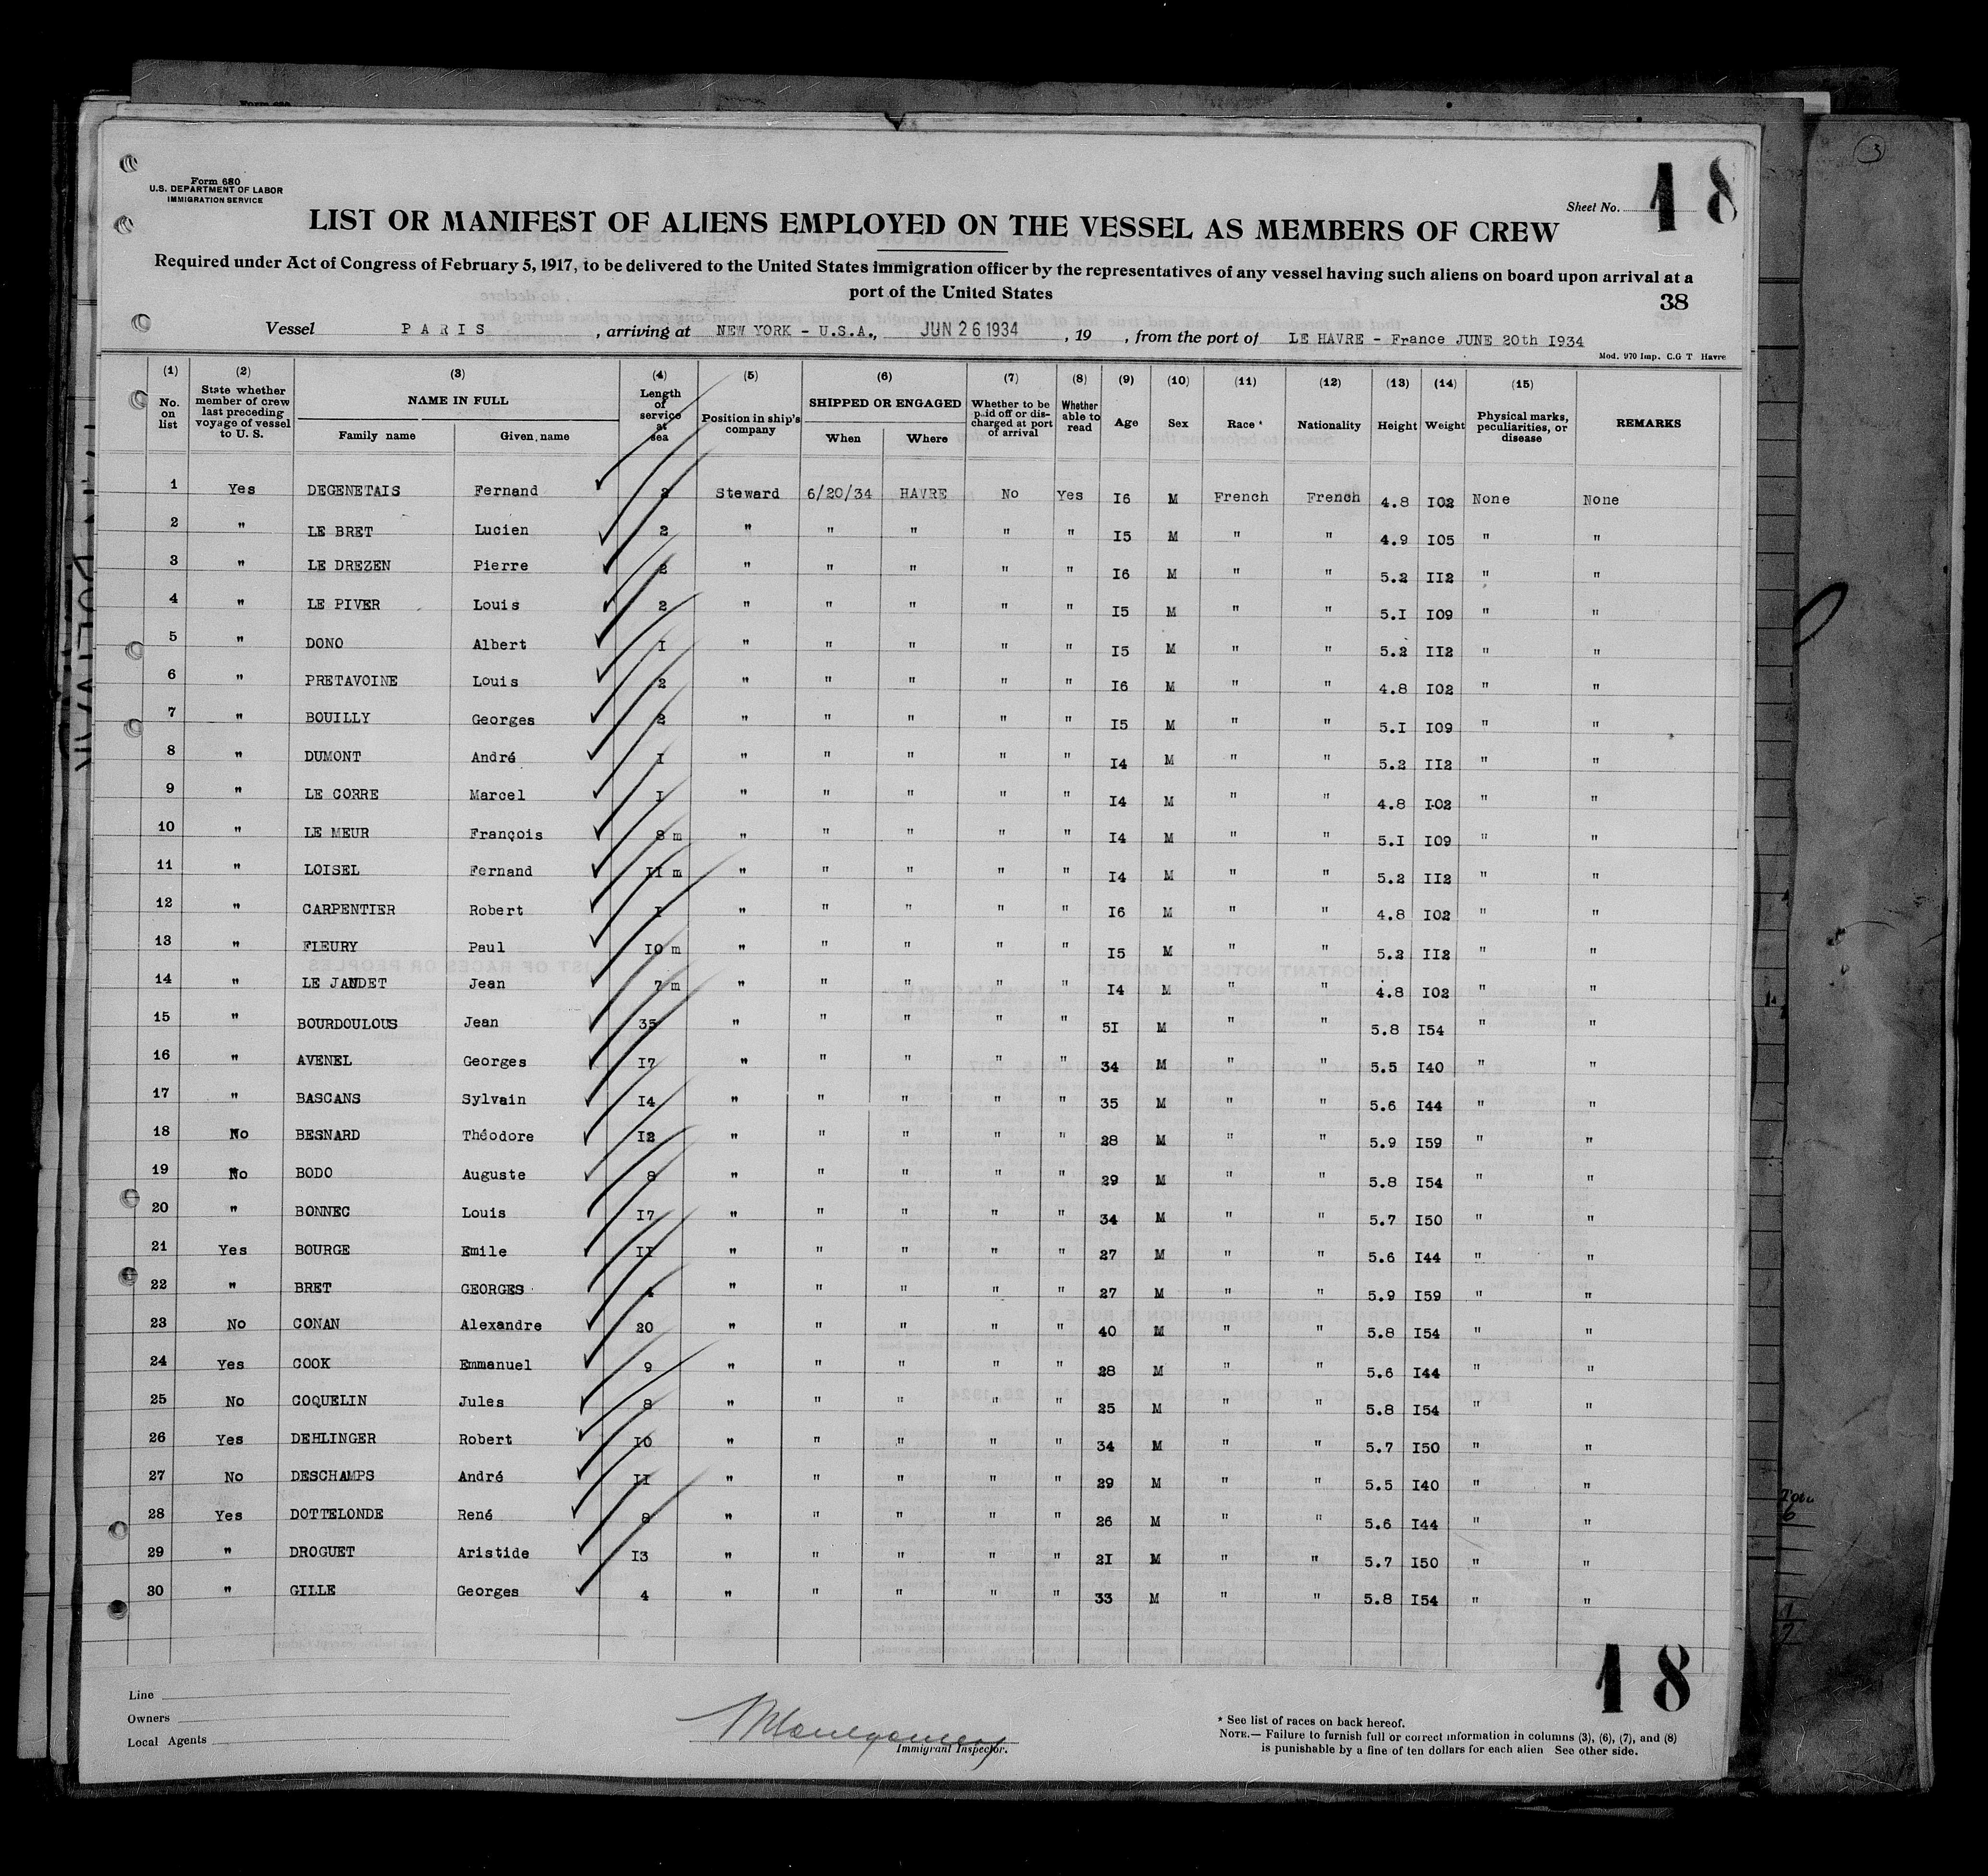 Form 680
U.S. DEPARTMENT OF LABOR
IMMIGRATION SERVICE
Sheet No. 18
LIST OR MANIFEST OF ALIENS EMPLOYED ON THE VESSEL AS MEMBERS OF CREW
Required under Act of Congress of February 5, 1917, to be delivered to the United States immigration officer by the representatives of any vessel having such aliens on board upon arrival at a
port of the United States
38
Vessel PARIS, arriving at NEW YORK - U.S.A., JUN 26 1934, 19 , from the port of LE HAVRE - France JUNE 20th I934
Mod. 970 Imp. C.G T Havre
(1) No. on list (2) State whether member of crew last preceding voyage of vessel to U. S. (3) NAME IN FULL Family name Given name (4) Length of service at sea (5) Position in ship's company (6) SHIPPED OR ENGAGED When Where (7) Whether to be paid off or discharged at port of arrival (8) Whether able to read (9) Age (10) Sex (11) Race * (12) Nationality (13) Height (14) Weight (15) Physical marks, peculiarities, or disease REMARKS
1 Yes DEGENETAIS Fernand 2 Steward 6/20/34 HAVRE No Yes I6 M French French 4.8 I02 None None
2 " LE BRET Lucien 2 " " " " " I5 M " " 4.9 I05 " "
3 " LE DREZEN Pierre 2 " " " " " I6 M " " 5.2 II2 " "
4 " LE PIVER Louis 2 " " " " " I5 M " " 5.I I09 " "
5 " DONO Albert I " " " " " I5 M " " 5.2 II2 " "
6 " PRETAVOINE Louis 2 " " " " " I6 M " " 4.8 I02 " "
7 " BOUILLY Georges 2 " " " " " I5 M " " 5.I I09 " "
8 " DUMONT André I " " " " " I4 M " " 5.2 II2 " "
9 " LE CORRE Marcel I " " " " " I4 M " " 4.8 I02 " "
10 " LE MEUR François 8 m " " " " " I4 M " " 5.I I09 " "
11 " LOISEL Fernand II m " " " " " I4 M " " 5.2 II2 " "
12 " CARPENTIER Robert I " " " " " I6 M " " 4.8 I02 " "
13 " FLEURY Paul I0 m " " " " " I5 M " " 5.2 II2 " "
14 " LE JANDET Jean 7 m " " " " " I4 M " " 4.8 I02 " "
15 " BOURDOULOUS Jean 35 " " " " " 5I M " " 5.8 I54 " "
16 " AVENEL Georges I7 " " " " " 34 M " " 5.5 I40 " "
17 " BASCANS Sylvain I4 " " " " " 35 M " " 5.6 I44 " "
18 No BESNARD Théodore I2 " " " " " 28 M " " 5.9 I59 " "
19 No BODO Auguste 8 " " " " " 29 M " " 5.8 I54 " "
20 " BONNEC Louis I7 " " " " " 34 M " " 5.7 I50 " "
21 Yes BOURGE Emile II " " " " " 27 M " " 5.6 I44 " "
22 " BRET GEORGES 4 " " " " " 27 M " " 5.9 I59 " "
23 No CONAN Alexandre 20 " " " " " 40 M " " 5.8 I54 " "
24 Yes COOK Emmanuel 9 " " " " " 28 M " " 5.6 I44 " "
25 No COQUELIN Jules 8 " " " " " 25 M " " 5.8 I54 " "
26 Yes DEHLINGER Robert I0 " " " " " 34 M " " 5.7 I50 " "
27 No DESCHAMPS André II " " " " " 29 M " " 5.5 I40 " "
28 Yes DOTTELONDE René 8 " " " " " 26 M " " 5.6 I44 " "
29 " DROGUET Aristide I3 " " " " " 2I M " " 5.7 I50 " "
30 " GILLE Georges 4 " " " " " 33 M " " 5.8 I54 " "
18
Line
Owners
Local Agents
Immigrant Inspector.
* See list of races on back hereof.
NOTE.— Failure to furnish full or correct information in columns (3), (6), (7), and (8)
is punishable by a fine of ten dollars for each alien See other side.